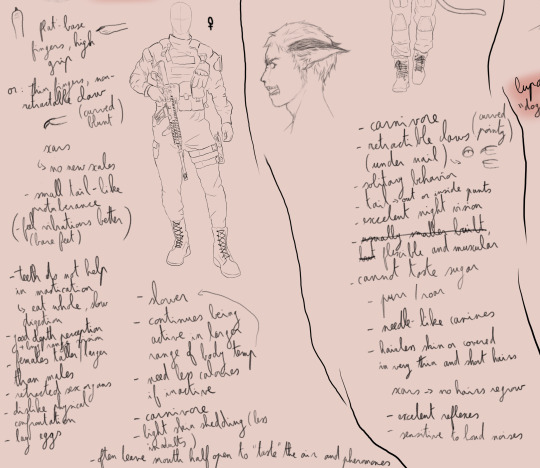 flat-base
fingers, high
grip
or: thin fingers, non-
retractable claw
(curved
blunt)
scars
↳ no new scales
- small tail-like
protuberance
(- feel vibrations better)
(bare feet)
- teeth do not help
in mastication
↳ eat whole, slow
digestion
- good depth perception
- females taller/larger
than males
- retracted sex organs
- dislike physical
confrontation
- lay eggs
♀
- slower
- continues being
active in larger
range of body temp
- need less calories
if inactive
- carnivore
- light skin shedding (less
in adults)
- often leave mouth half open to "taste" the air and pheromones
- carnivore
- retractible claws (curved
pointy)
(under nail)
- solitary behavior
- tail: out or inside pants
- excellent night vision
- usually smaller built,
but flexible and muscular
- cannot taste sugar
- purr / roar
- needle-like canines
- hairless skin or covered
in very thin and short hairs
scars → no hairs regrow
- excelent reflexes
- sensitive to loud noises
"dog